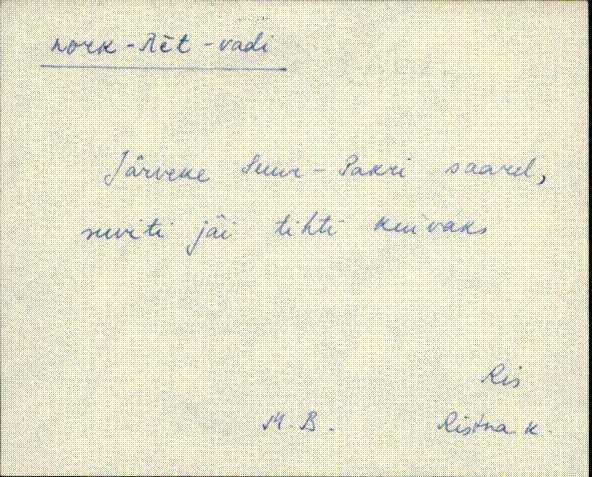 nork-Rēt-vadi
Järveke Suur-Pakri saarel,
suviti jäi tihti kuivaks
Ris
M.B. Ristna k.